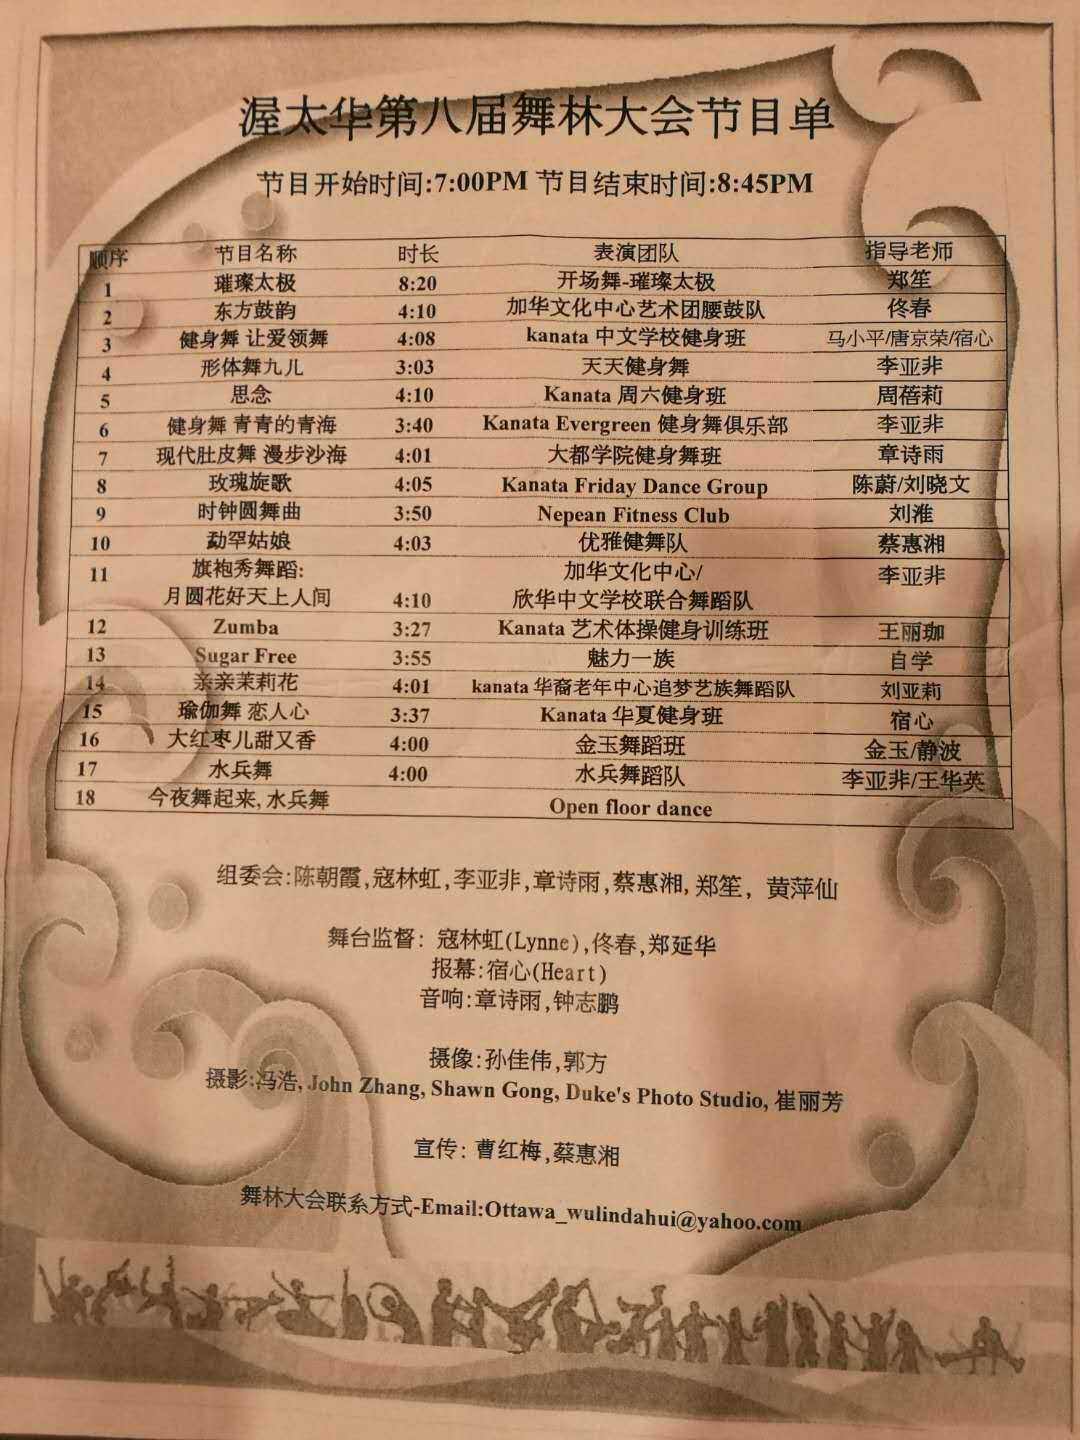 渥太华第八届舞林大会节目单
节目开始时间:7:00PM 节目结束时间:8:45PM
顺序 节目名称 时长 表演团队 指导老师
1 璀璨太极 8:20 开场舞-璀璨太极 郑笙
2 东方鼓韵 4:10 加华文化中心艺术团腰鼓队 佟春
3 健身舞 让爱领舞 4:08 kanata 中文学校健身班 马小平/唐京荣/宿心
4 形体舞九儿 3:03 天天健身舞 李亚非
5 思念 4:10 Kanata 周六健身班 周蓓莉
6 健身舞 青青的青海 3:40 Kanata Evergreen 健身舞俱乐部 李亚非
7 现代肚皮舞 漫步沙海 4:01 大都学院健身舞班 章诗雨
8 玫瑰旋歌 4:05 Kanata Friday Dance Group 陈蔚/刘晓文
9 时钟圆舞曲 3:50 Nepean Fitness Club 刘淮
10 勐罕姑娘 4:03 优雅健舞队 蔡惠湘
11 旗袍秀舞蹈: 加华文化中心/ 李亚非
月圆花好天上人间 4:10 欣华中文学校联合舞蹈队
12 Zumba 3:27 Kanata 艺术体操健身训练班 王丽珈
13 Sugar Free 3:55 魅力一族 自学
14 亲亲茉莉花 4:01 kanata 华裔老年中心追梦艺族舞蹈队 刘亚莉
15 瑜伽舞 恋人心 3:37 Kanata 华夏健身班 宿心
16 大红枣儿甜又香 4:00 金玉舞蹈班 金玉/静波
17 水兵舞 4:00 水兵舞蹈队 李亚非/王华英
18 今夜舞起来, 水兵舞 Open floor dance
组委会:陈朝霞,寇林虹,李亚非,章诗雨,蔡惠湘, 郑笙, 黄萍仙
舞台监督: 寇林虹(Lynne),佟春,郑延华
报幕:宿心(Heart)
音响:章诗雨,钟志鹏
摄像:孙佳伟,郭方
摄影:冯浩, John Zhang, Shawn Gong, Duke's Photo Studio, 崔丽芳
宣传: 曹红梅,蔡惠湘
舞林大会联系方式-Email:Ottawa_wulindahui@yahoo.com